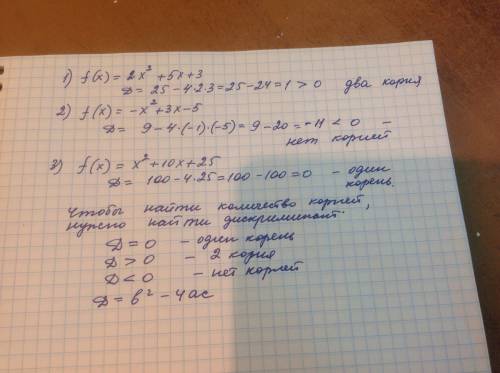 1) f(x) = 2x² + 5x + 3
D = 25 - 4·2·3 = 25 - 24 = 1 > 0 два корня
2) f(x) = -x² + 3x - 5
D = 9 - 4·(-1)·(-5) = 9 - 20 = -11 < 0 -
нет корней
3) f(x) = x² + 10x + 25
D = 100 - 4·25 = 100 - 100 = 0 - один
корень.
Чтобы найти количество корней,
нужно найти дискриминант.
D = 0 - один корень
D > 0 - 2 корня
D < 0 - нет корней
D = b² - 4ac